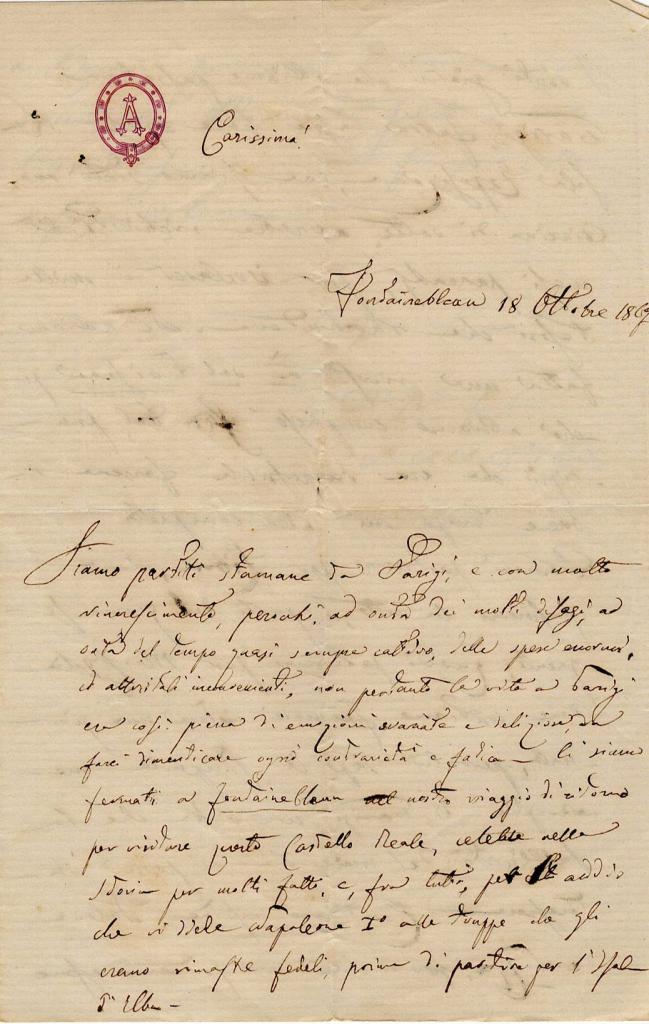 A
Carissima!
Fontainebleau 18 Ottobre 186
Siamo partiti stamane da Parigi, e con molto
rincrescimento, perochè, ad onta dei molti disagi, ad
onta del tempo quasi sempre cattivo, delle spese enormi,
ed altri tali inconvenienti, non pertanto la vita a Parigi
era così piena di emozioni svariate e deliziose, da
farci dimenticare ogni contrarietà e fatica — Ci siamo
fermati a Fontainebleau nel nostro viaggio di ritorno
per visitare questo Castello Reale, celebre nella
storia per molti fatti, e, fra tutti, per addio
che vi diede Napoleone I° alle truppe che gli
erano rimaste fedeli, prima di partire per l'Isola
d'Elba —